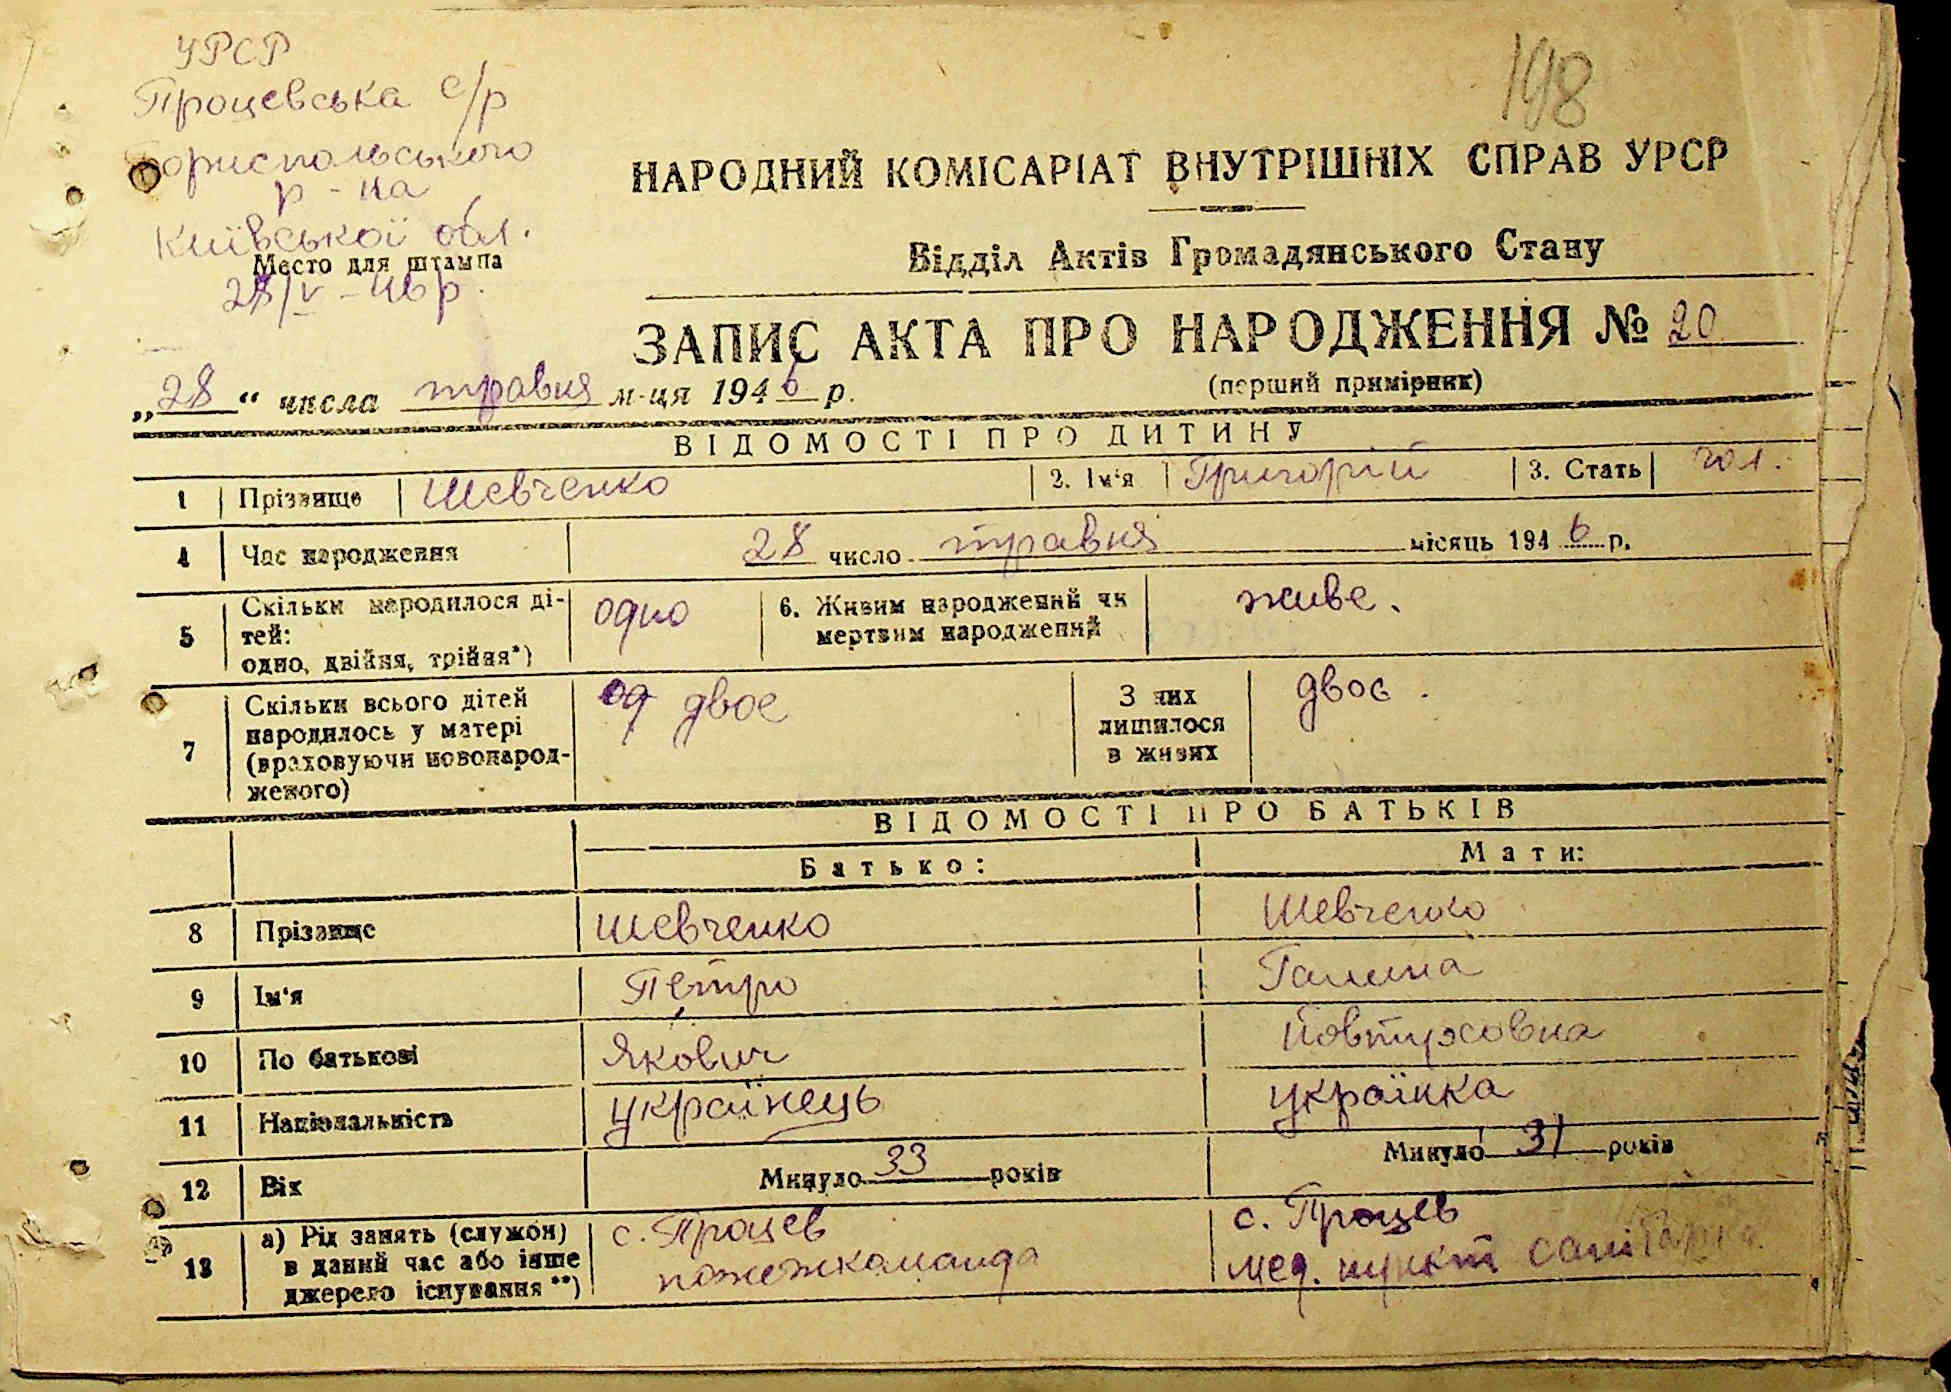 УРСР
198
Процевська с/р
Бориспольського
р-на
Київської обл.
Место для штампа
28/V-46р.
НАРОДНИЙ КОМІСАРІАТ ВНУТРІШНІХ СПРАВ УРСР
Відділ Актів Громадянського Стану
ЗАПИС АКТА ПРО НАРОДЖЕННЯ № 20
(перший примірник)
„28“ числа травня м-ця 1946 р.
ВІДОМОСТІ ПРО ДИТИНУ
1 Прізвище Шевченко 2. Ім'я Григорій 3. Стать чол.
4 Час народження 28 число травня місяць 1946 р.
5 Скільки народилося ді-
тей:
одно, двійня, трійня*) одно 6. Живим народжений чи
мертвим народжений живе.
7 Скільки всього дітей
народилось у матері
(враховуючи новонарод-
женого) од двое З них
лишилося
в живих двоє.
ВІДОМОСТІ ПРО БАТЬКІВ
Батько: Мати:
8 Прізвище Шевченко Шевченко
9 Ім'я Петро Галина
10 По батькові Якович Йовтуховна
11 Національність українець українка
12 Вік Минуло 33 років Минуло 31 років
13 а) Рід занять (служби)
в даний час або інше
джерело існування **) с. Процев
пожежкоманда с. Процев
мед. пункт санітарка